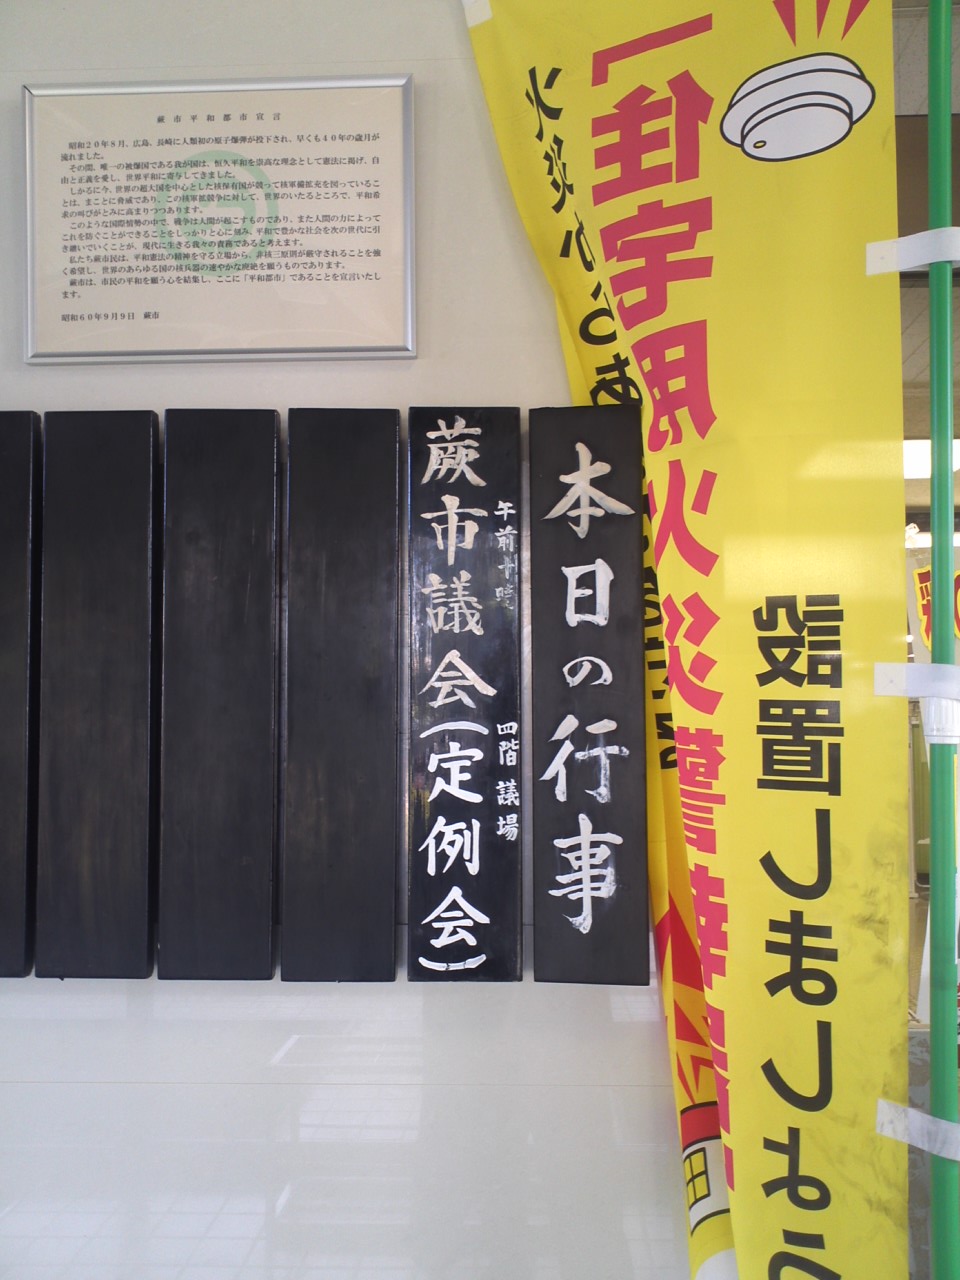 蕨市平和都市宣言
昭和２０年８月、広島、長崎に人類初の原子爆弾が投下され、早くも４０年の歳月が
流れました。
その間、唯一の被爆国である我が国は、恒久平和を崇高な理念として憲法に掲げ、自
由と正義を愛し、世界平和に寄与してきました。
しかるに今、世界の超大国を中心とした核保有国が競って核軍備拡充を図っているこ
とは、まことに脅威であり、この核軍拡競争に対して、世界のいたるところで、平和希
求の叫びがとみに高まりつつあります。
このような国際情勢の中で、戦争は人間が起こすものであり、また人間の力によって
これを防ぐことができることをしっかりと心に刻み、平和で豊かな社会を次の世代に引
き継いでいくことが、現代に生きる我々の責務であると考えます。
私たち蕨市民は、平和憲法の精神を守る立場から、非核三原則が厳守されることを強
く希望し、世界のあらゆる国の核兵器の速やかな廃絶を願うものであります。
蕨市は、市民の平和を願う心を結集し、ここに「平和都市」であることを宣言いたし
ます。
昭和６０年９月９日　蕨市
本日の行事
午前十時 四階 議場
蕨市議会(定例会)
住宅用火災警
設置しましょう